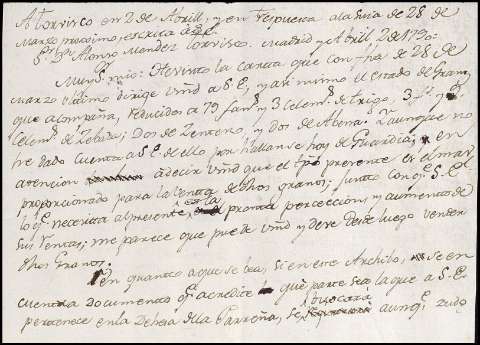 A Torrisco en 2 de Abrill, y en respuesta a la suia de 28 de
Marzo proximo, escrita
Sr. Dn. Alonso Mendez Torrisco. Madrid y Abril 2 de 1790:
Muy Sr. mio: He visto la Carta que con fha de 28 de
Marzo ultimo dirige vmd a S.E, y asi mismo el estado de Granos,
que acompaña, reducidos a 79 fans. y 3 celems. de trigo, 3 fs. y
Celems. de Zebada; Dos de Zenteno, y dos de Abena. Y aunque no
he dado Cuenta a S.E de ello por hallarse hoy de Guardia; en
atencion a decir vmd que el tpo presente es el mas
proporcionado para la venta de dhos granos; junto con q. S.E.
lo q. necesita al presente es la pronta percepcion, y aumento de
sus Rentas; me parece que puede vmd y deve desde luego vender
dhos Granos.
En quanto a que se bea, si en este Archibo, se en
cuentra documento q. acredite que parte sea la que a S.E.
pertenece en la Dehesa de la Parreña, se buscará aunq.